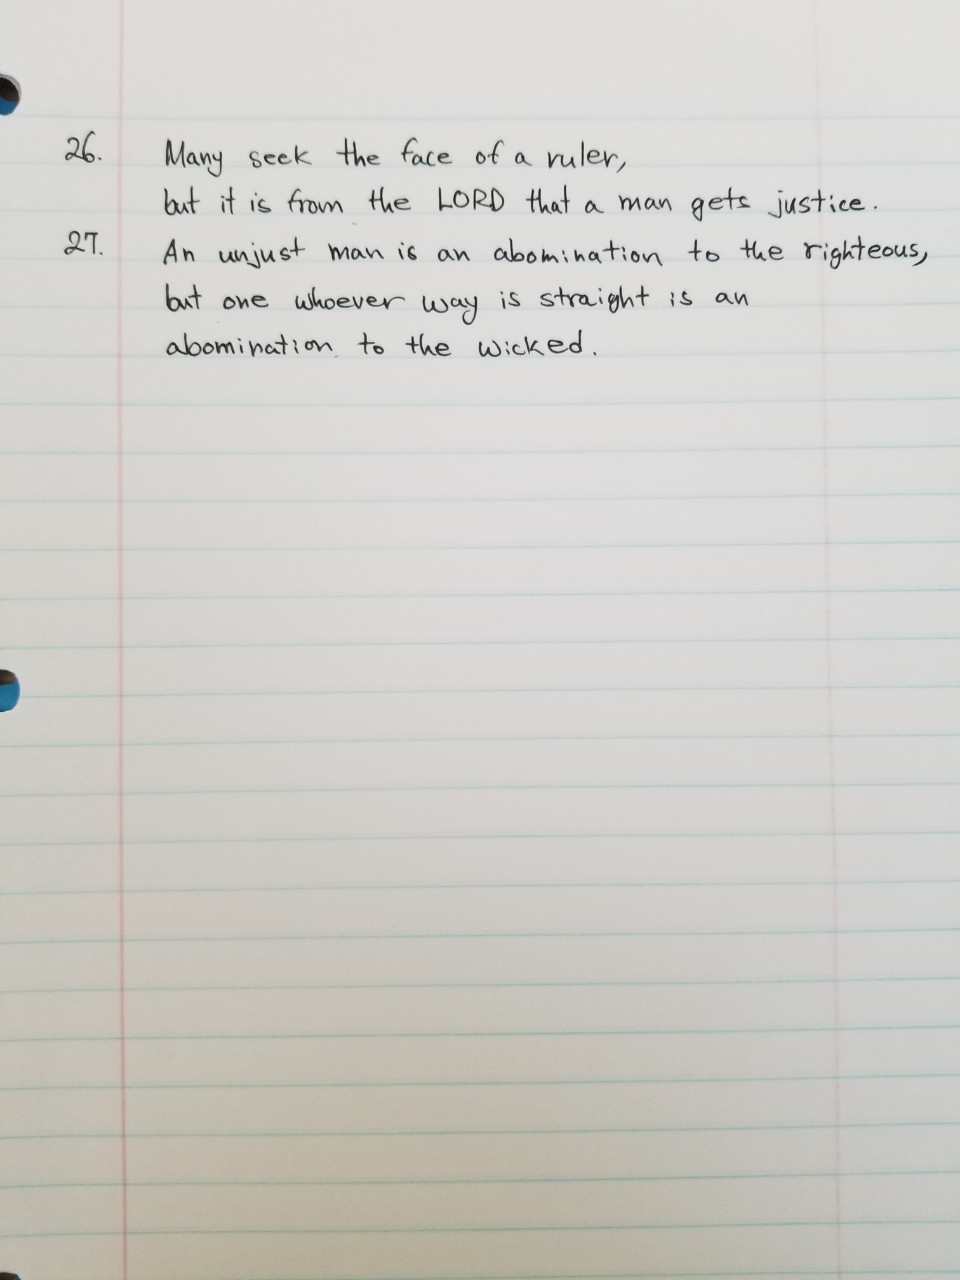 26. Many seek the face of a ruler,
but it is from the LORD that a man gets justice.
27. An unjust man is an abomination to the righteous,
but one whoever way is straight is an
abomination to the wicked.